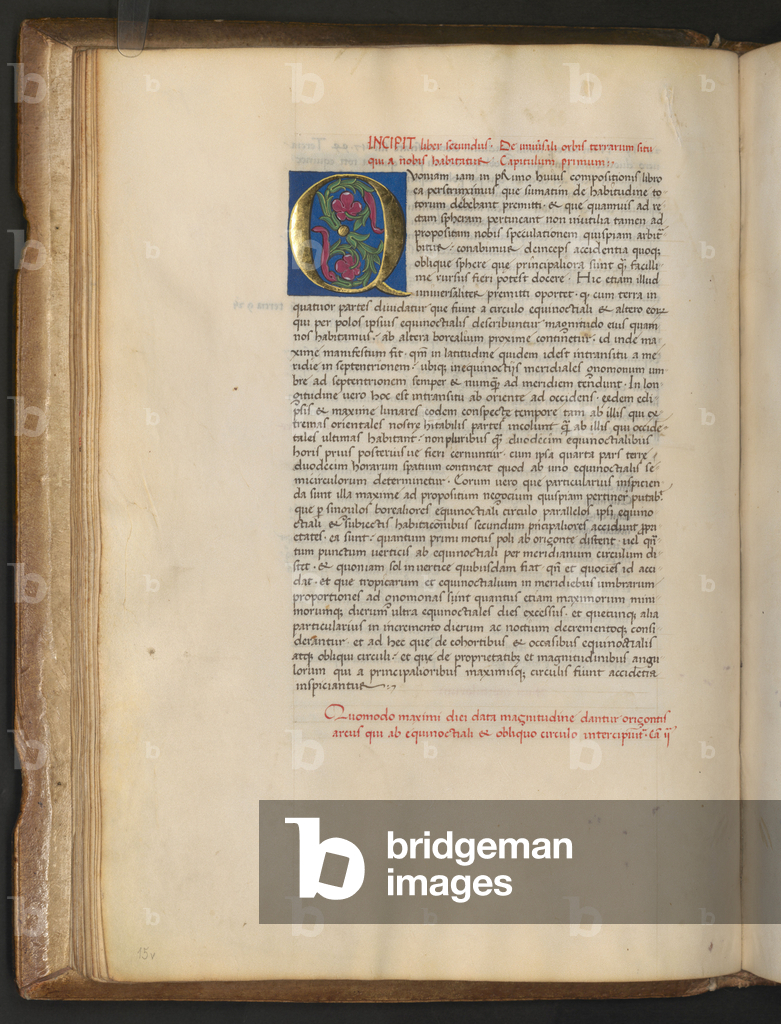 INCIPIT liber secundus. De univ̄sali orbis terrarum situ
qui a nobis habitatur Capitulum primum:.
Quoniam iam in pRimo huius compositionis libro
ea perstrinximus que sumatim de habitudine to
torum debebant premitti. & que quamuis ad re
ctam spheram pertineant non inutilia tamen ad
propositum nobis speculationem quispiam arbit̄
bitur: conabimur deinceps accidentia quoq;
oblique sphere que principaliora sunt q̄ facilli
me rursus fieri potest docere. Hic etiam illud
universaliter premitti oportet. q. cum terra in
quatuor partes dividatur que fiunt a circulo equinoctiali & altero eorum
qui per polos ipsius equinoctialis describuntur magnitudo eius quam
nos habitamus. ab altera borealium proxime continetur. id inde ma
xime manifestum fit. qm̄ in latitudine quidem idest intransitu a me
ridie in septentrionem. ubiq; inequinoctijs meridiales gnomonum um
bre ad septentrionem semper & numq̄ ad meridiem tendunt. In lon
gitudine uero hoc est intransitu ab oriente ad occidens. eedem ecli
psis & maxime lunares eodem conspecte tempore tam ab illis qui ex
tremas orientales nostre hitabilis partes incolunt q̄ ab illis qui occide
tales ultimas habitant. non pluribus q̄ duodecim equinoctialibus
horis prius posterius ue fieri cernuntur. cum ipsa quarta pars terre
duodecim horarum spatium contineat quod ab uno equinoctialis se
micirculorum determinetur. Eorum uero que particularius inspicien
da sunt illa maxime ad propositum negocium quispiam pertiner̄ putab̄
que p singulos borealiores equinoctiali circulo parallelos ipsi equino
ctiali & subiectis habitaconibus secundum pncipaliores accidunt ppri
etates. ea sunt. quantum primi motus poli ab origonte distent. uel qm̄
tum punctum uerticis ab equinoctiali per meridianum circulum di
stet. & quoniam sol in uertice quibusdam fiat qn̄ et quocies id acci
dat. et que tropicarum et equinoctialium in meridiebus umbrarum
proportiones ad gnomonas sunt quantus etiam maximorum mini
morumq; dierum ultra equinoctiales dies excessus. et quecunq; alia
particularius in incremento dierum ac noctium decrementoq; consi
derantur. et ad hec que de cohortibus & occasibus equinoctialis
atq; obliqui circuli. et que de proprietatib; et magnitudinibus angu
lorum qui a principalioribus maximisq; circulis fiunt accidentia
inspiciantur:.
Quomodo maximi diei data magnitudine dantur origontis
arcus qui ab equinoctiali & obliquo circulo intercipiūt. Ca ij
bridgeman
images
15v